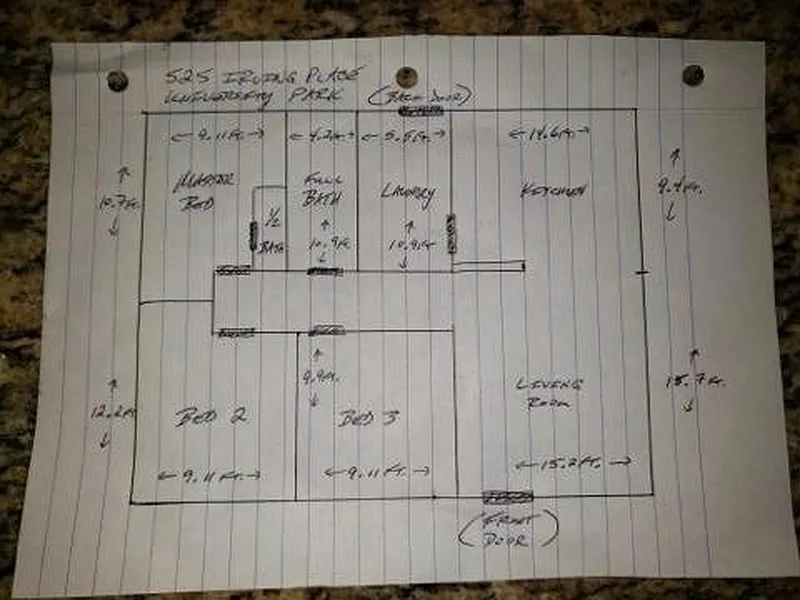 525 IRVING PLACE
UNIVERSITY PARK
(BACK DOOR)
9.11 Ft.
4.2 Ft
5.5 Ft.
14.6 Ft.
MASTER
BED
FULL
BATH
LAUNDRY
KITCHEN
10.7 Ft.
9.4 Ft.
1/2
BATH
10.9 Ft.
10.9 Ft
9.9 Ft.
12.2 Ft
BED 2
BED 3
LIVING
ROOM
15.7 Ft.
9.11 Ft.
9.11 Ft.
15.2 Ft.
(FRONT
DOOR)